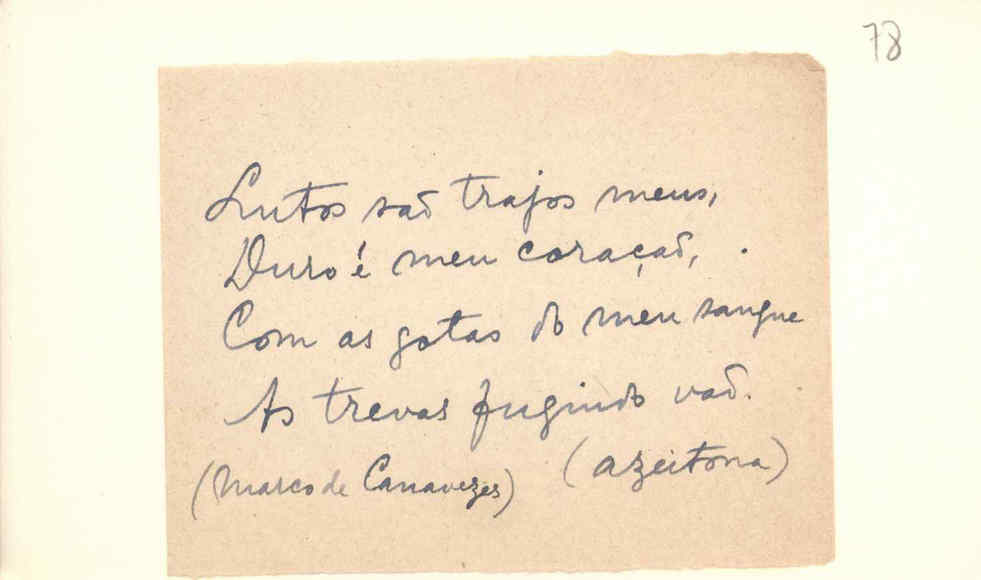 78
Lutos são trajos meus,
Duro é meu coração,
Com as gotas do meu sangue
As trevas fugindo vão.
(azeitona)
(Marco de Canavezes)